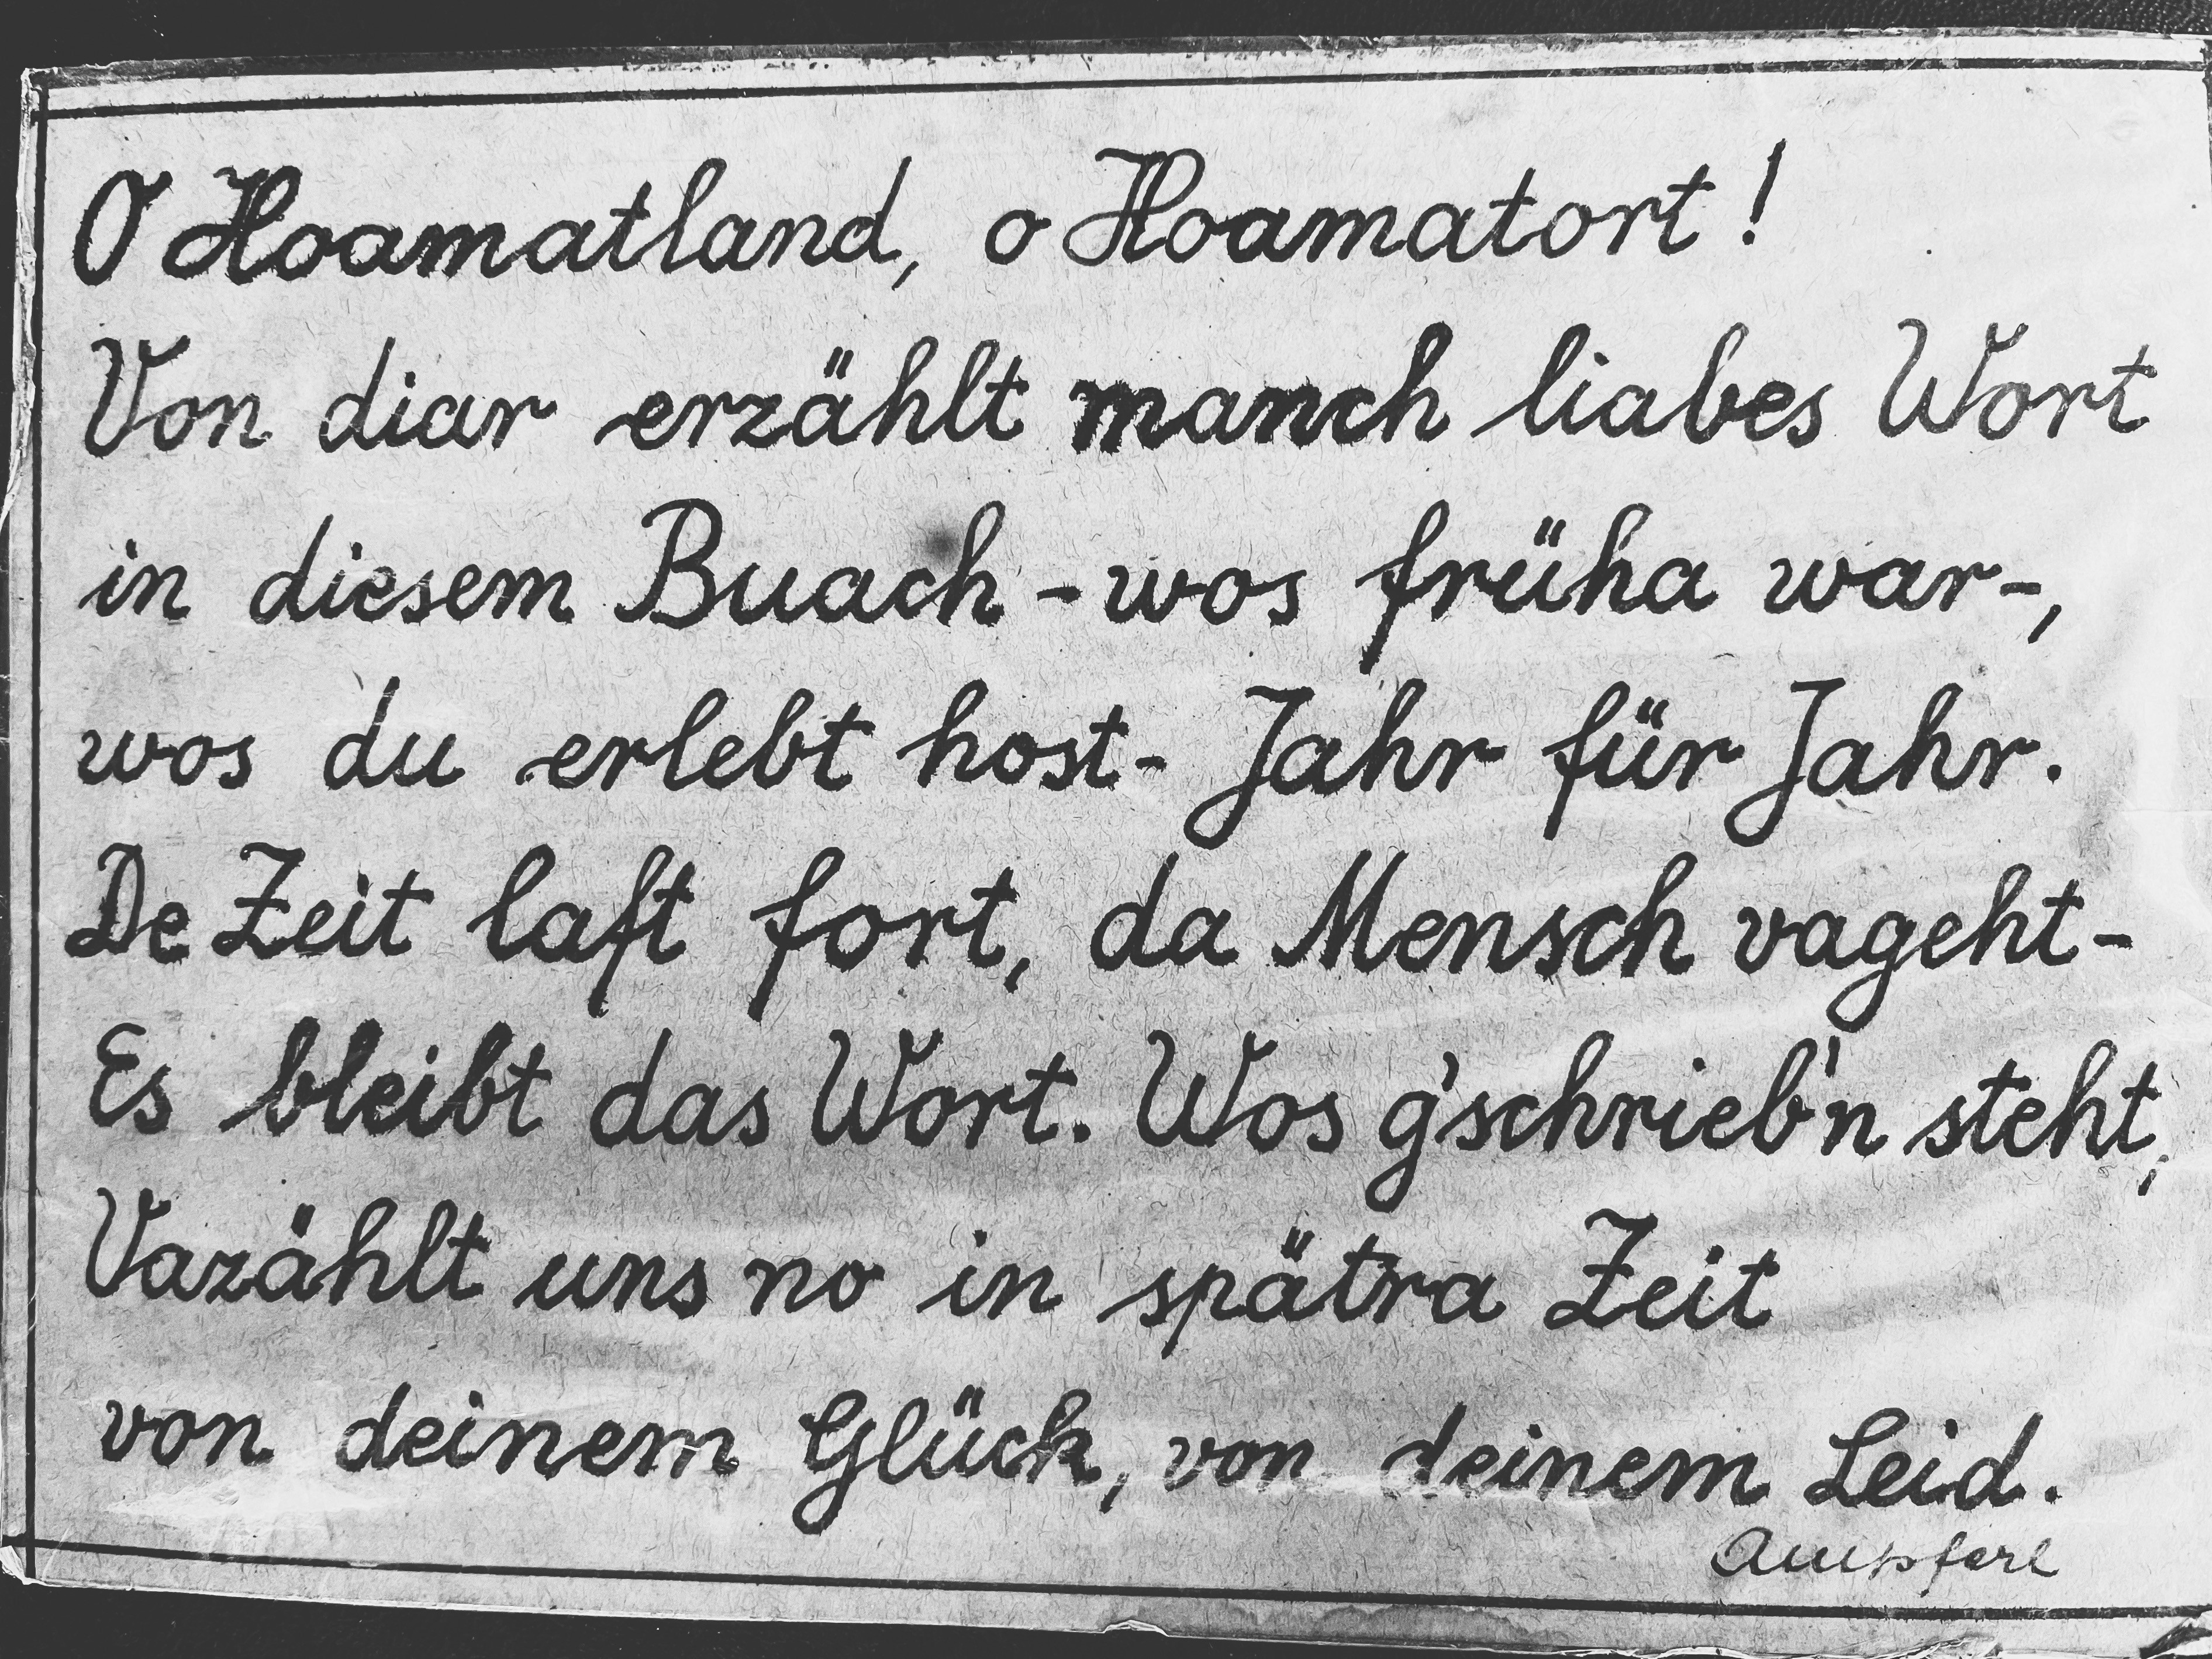 O Hoamatland, o Hoamatort!
Von diar erzählt manch liabes Wort
in diesem Buach - wos früha war-,
wos du erlebt host- Jahr für Jahr.
De Zeit laft fort, da Mensch vageht-
Es bleibt das Wort. Wos g'schrieb'n steht,
Vazählt uns no in spätra Zeit
von deinem Glück, von deinem Leid.